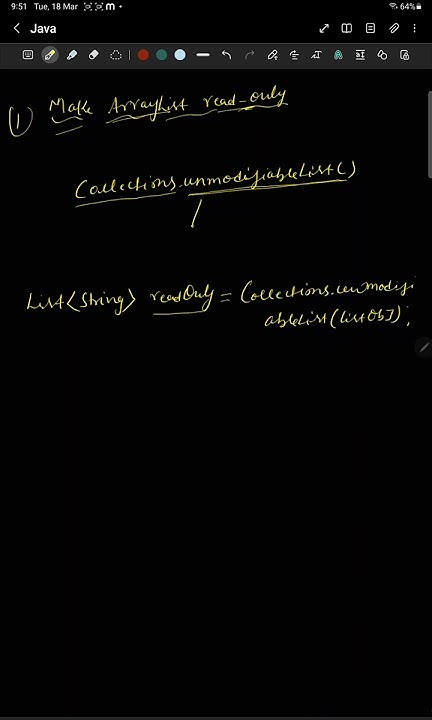 9:51 Tue, 18 Mar
64%
Java
(1) Make ArrayList read-only
Collections.unmodifiableList()
List<String> readOnly = Collections.unmodifi
ableList(listObj);